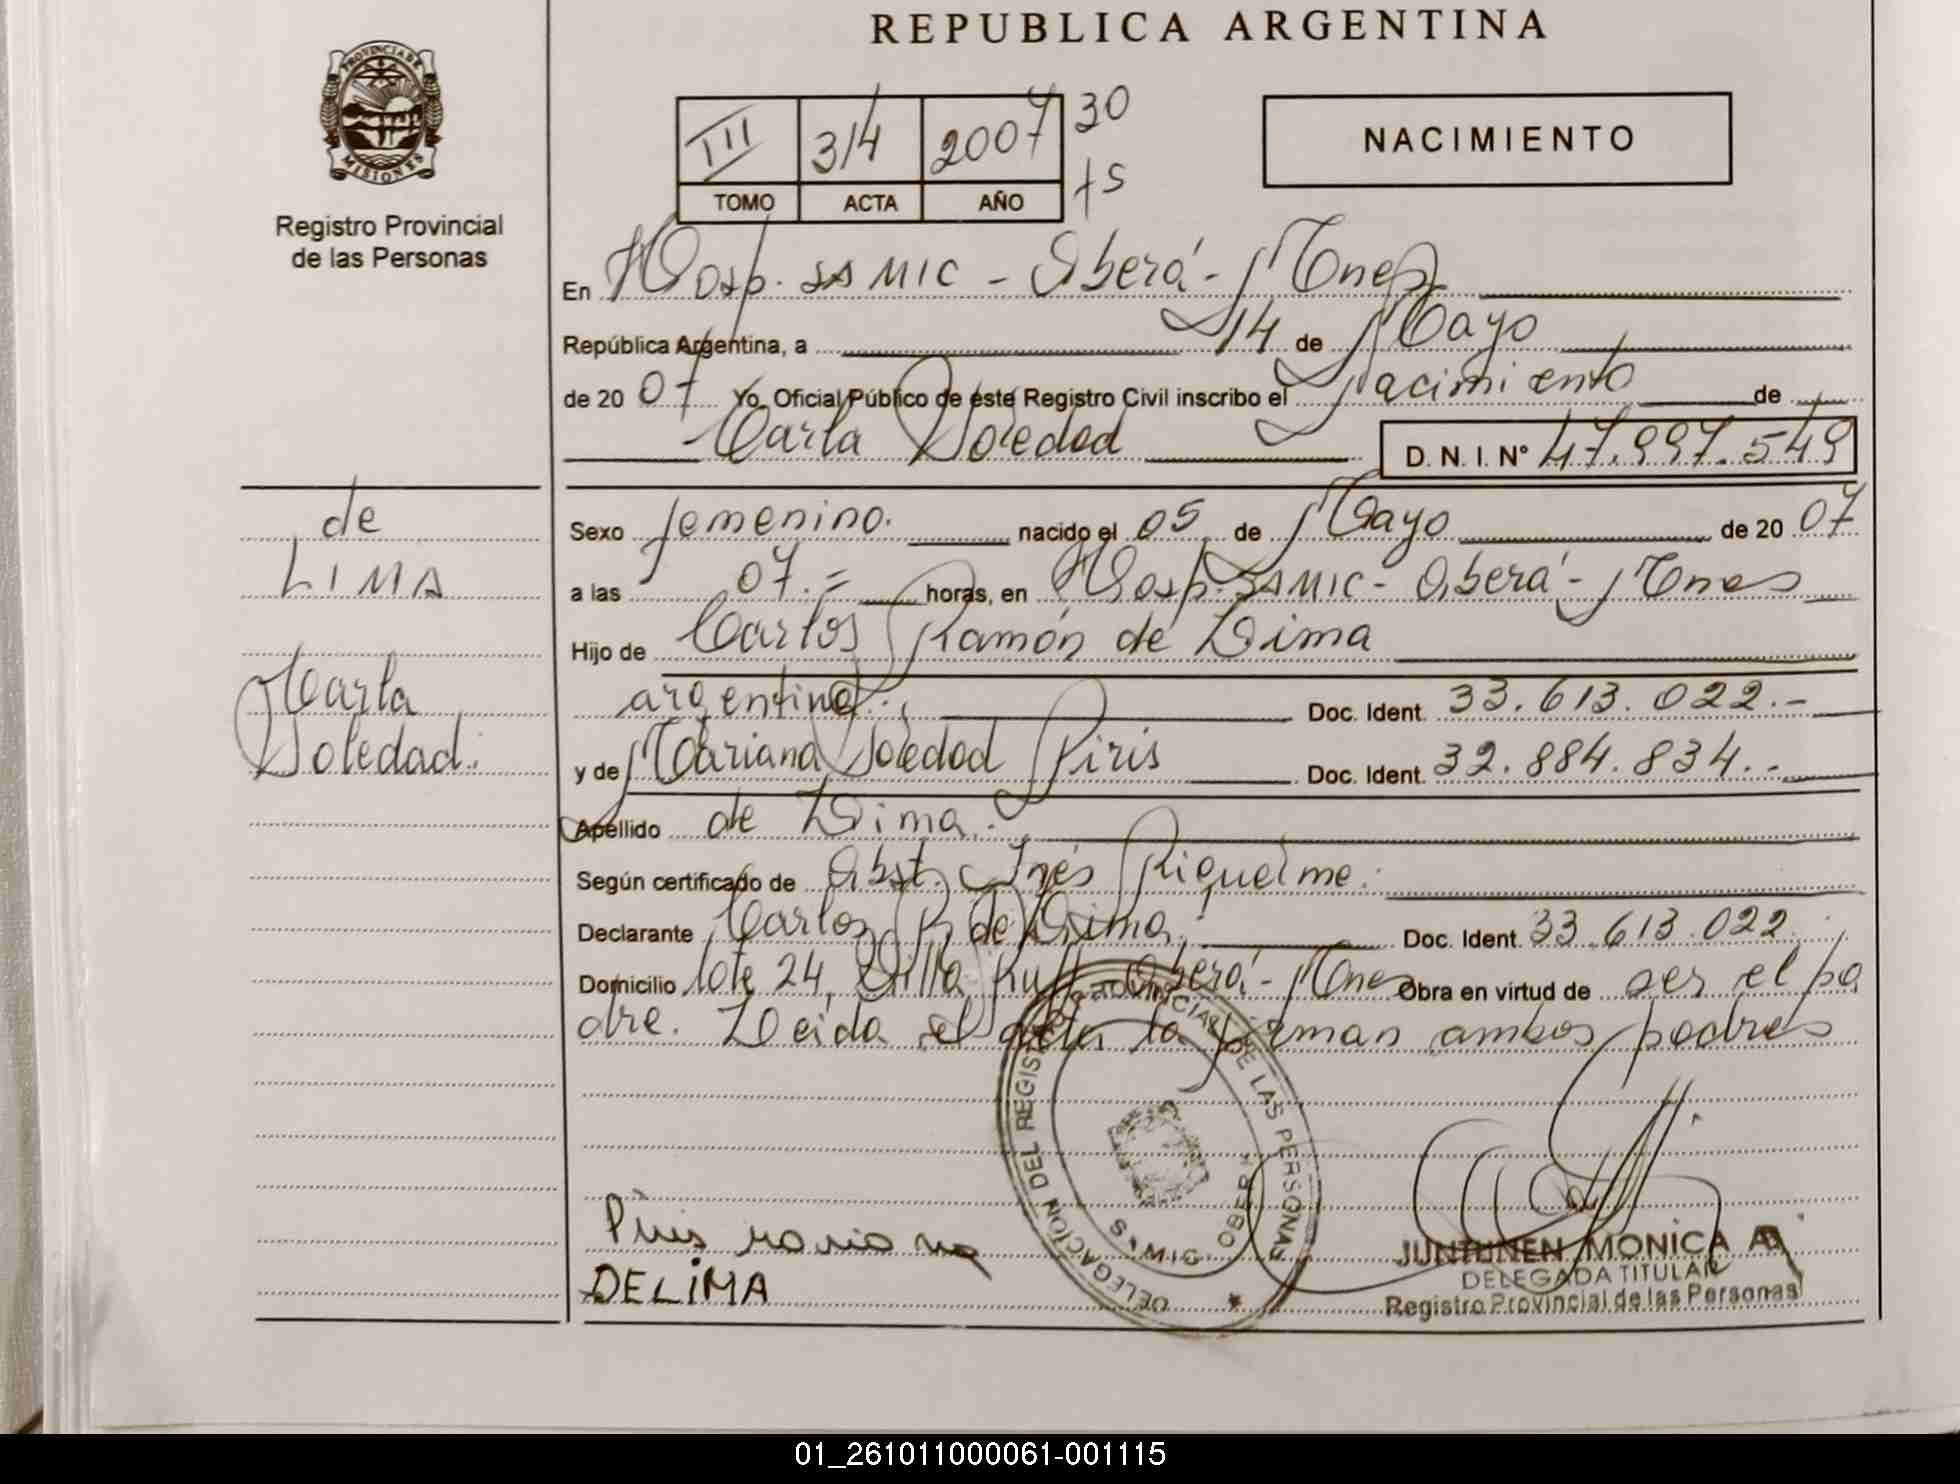 REPUBLICA ARGENTINA
PROVINCIA DE
MISIONES
Registro Provincial
de las Personas
III 314 2007 30
TOMO ACTA AÑO +5
NACIMIENTO
En Hosp. SAMIC - Oberá - Mnes
República Argentina, a 14 de Mayo
de 20 07 Yo, Oficial Público de este Registro Civil inscribo el Nacimiento de
Carla Soledad D. N. I. Nº 47.997.549
de
LIMA
Carla
Soledad.
Sexo femenino. nacido el 05 de Mayo de 20 07
a las 07.= horas, en Hosp. SAMIC - Oberá - Mnes
Hijo de Carlos Ramón de Lima
argentino. Doc. Ident. 33.613.022.-
y de Mariana Soledad Piris Doc. Ident. 32.884.834.-
Apellido de Lima.
Según certificado de Obst. Inés Riquelme.
Declarante Carlos R. de Lima, Doc. Ident. 33.613.022
Domicilio lote 24, Villa Ruff, Oberá - Mnes Obra en virtud de ser el pa
dre. Leída el acta la firman ambos padres
DELEGACIÓN DEL REGISTRO PROVINCIAL DE LAS PERSONAS
OBERA
Piris mariana
DELiMA
JUNTUNEN MONICA A.
DELEGADA TITULAR
Registro Provincial de las Personas
01_261011000061-001115